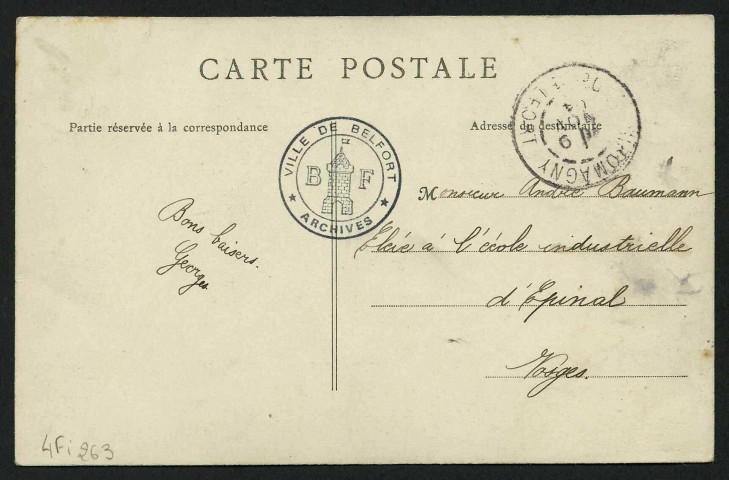 CARTE POSTALE
Partie réservée à la correspondance
Adresse du destinataire
VILLE DE BELFORT
B F
ARCHIVES
ROMAGNY
BELFORT
Monsieur André Baumann
Elève à l'école industrielle
d'Epinal
Vosges.
Bons baisers.
Georges
4Fi263